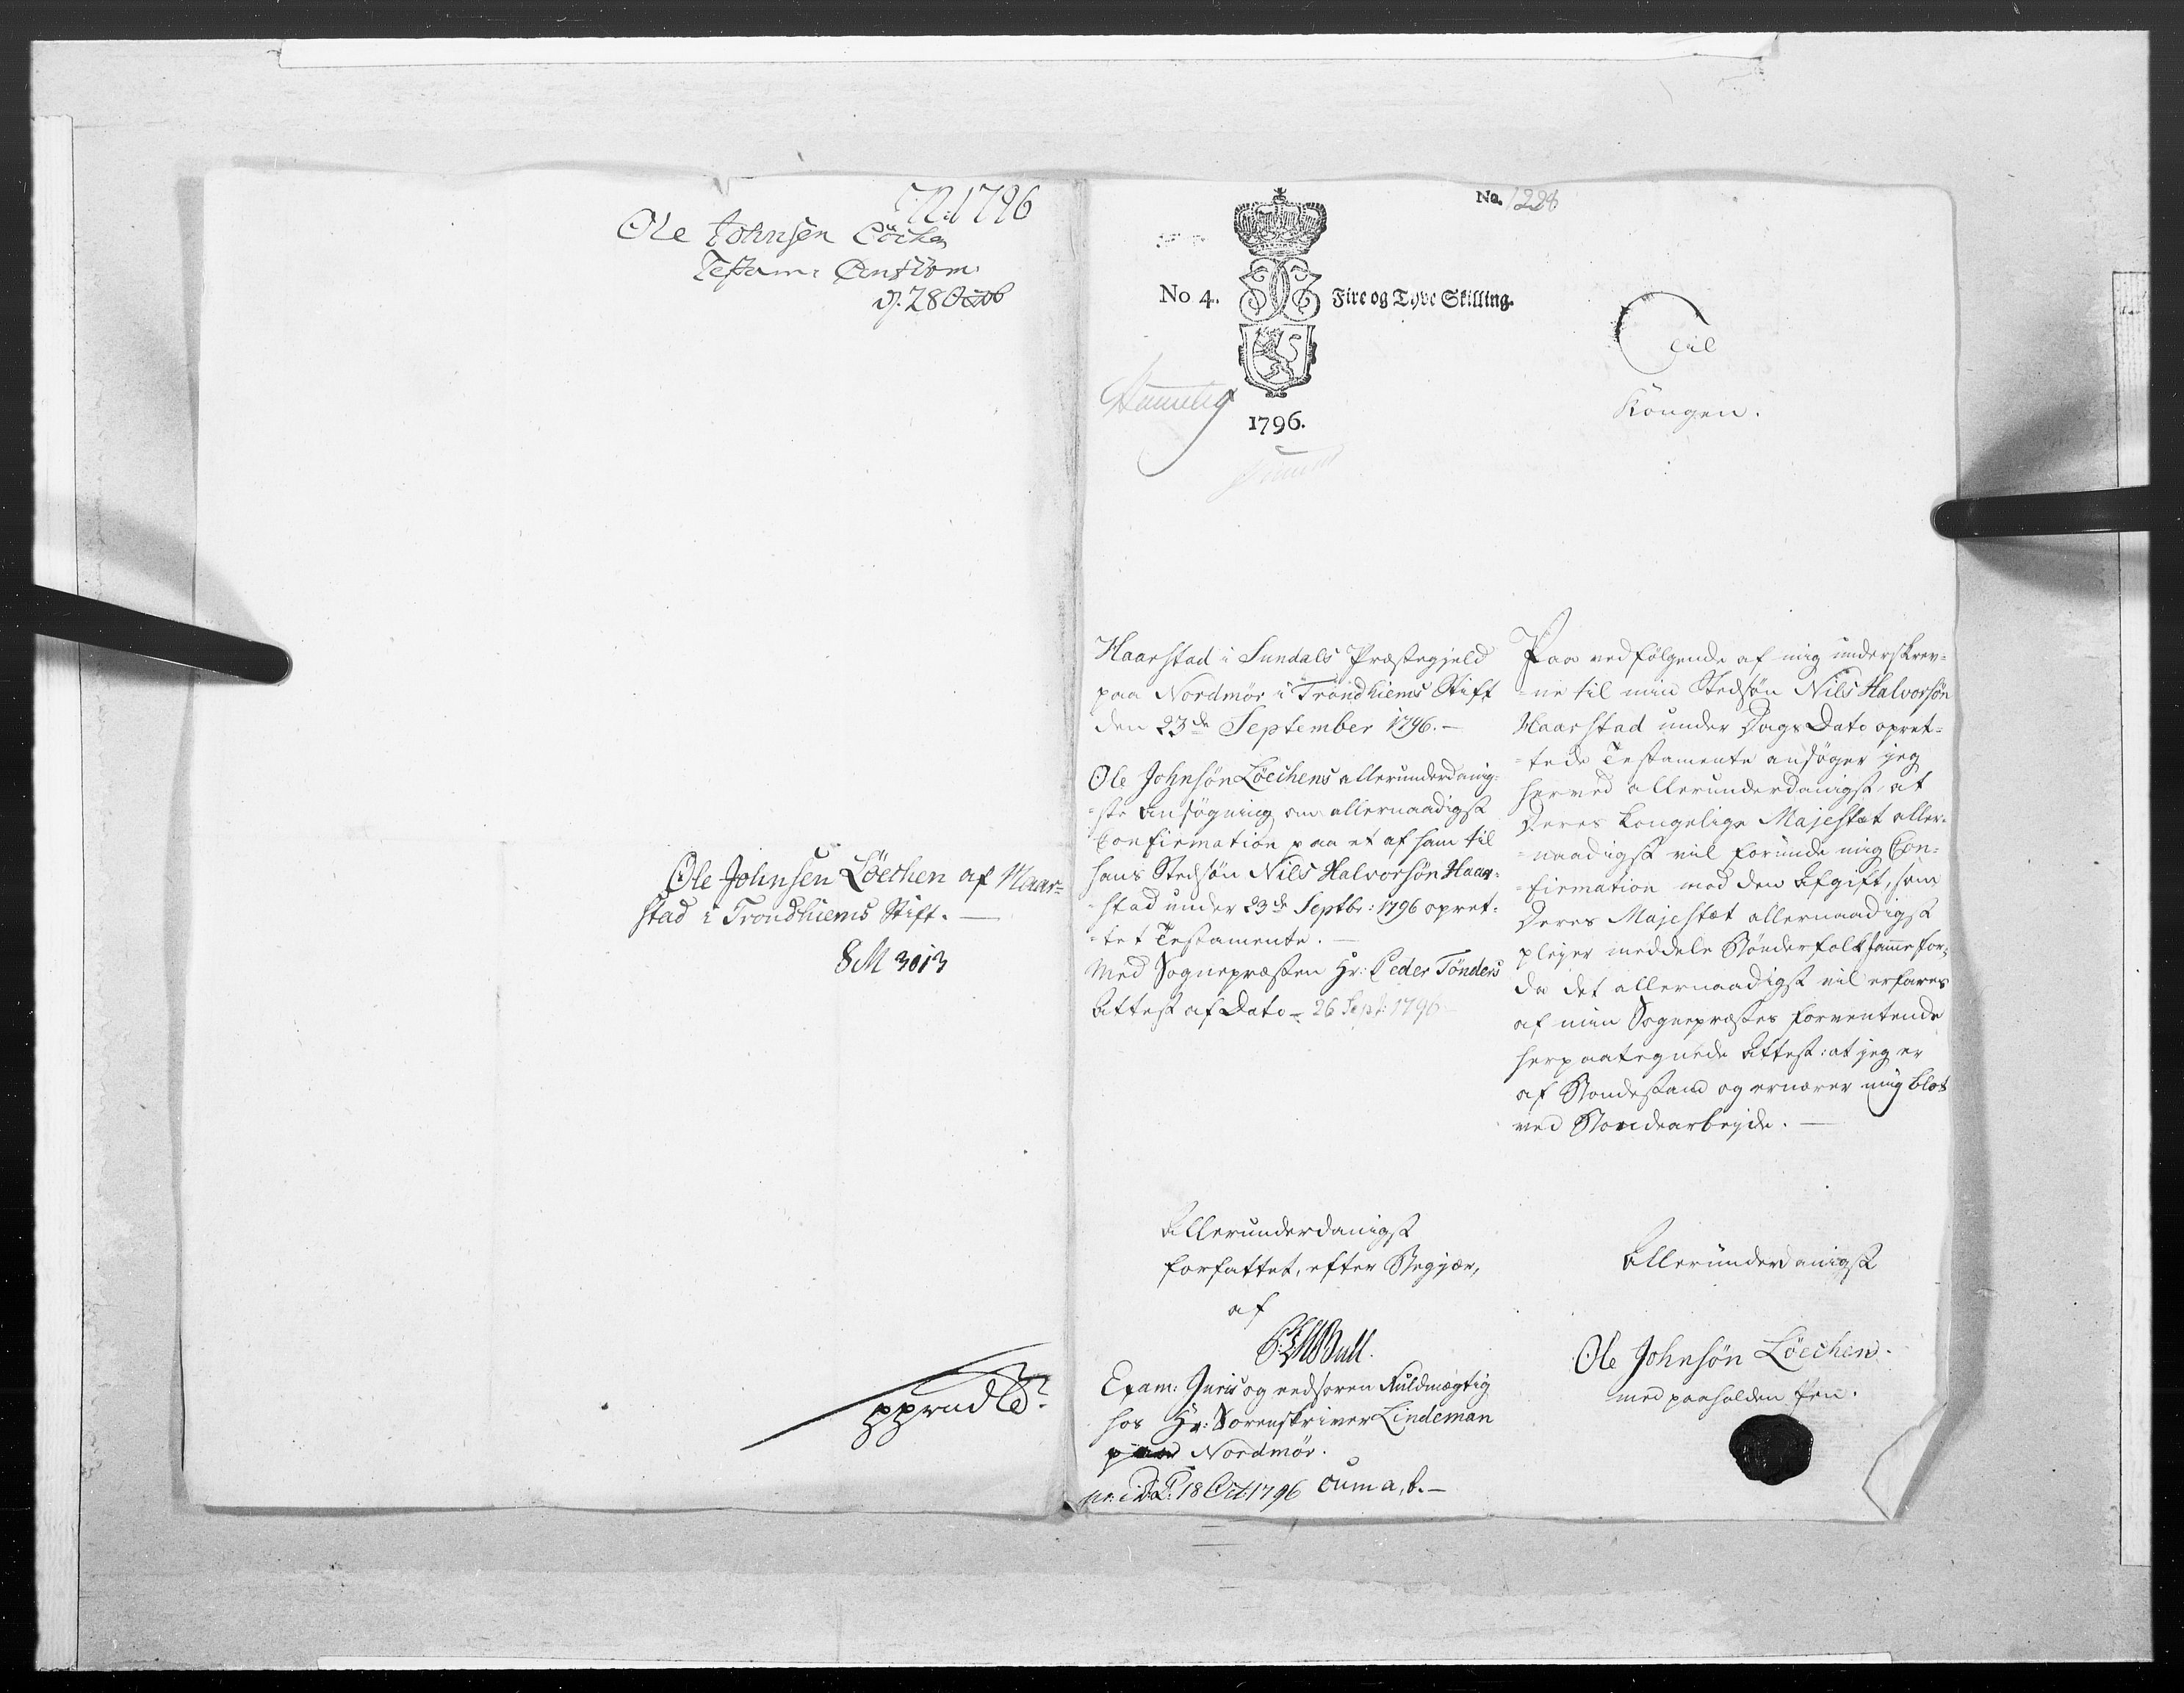 N: 1796
Ole Johnsen Löchen
Testam: Confirm:
d. 28 Octob
Ole Johnsen Löechen af Haar=
stad i Trondhiems Stift. —
8M 3013
No. 1228
No 4. Fire og Tyve Skilling.
1796.
Til
Kongen.
Haarstad i Sundals Præstegjeld
paa Nordmör i Trondhiems Stift
den 23de September 1796. —
Ole Johnsön Löechens allerunderdanig=
=ste Ansögning om allernaadigst
Confirmation paa et af ham til
hans Stedsön Nils Halvorsön Haar=
=stad under 23de Septbr: 1796 opret=
=tet Testamente. —
Med Sognepræsten Hr: Peder Tönders
Attest af Dato = 26 Sept: 1796
Paa vedfölgende af mig underskrev=
=ne til min Stedsön Nils Halvorsön
Haarstad under Dags Dato opret=
=tede Testamente ansöger jeg
herved allerunderdanigst, at
Deres Kongelige Majestæt aller=
=naadigst vil forunde mig Con=
=firmation mod den Afgift, som
Deres Majestæt allernaadigst
plejer meddele Bönderfolk samme for,
da det allernaadigst vil erfares
af min Sognepræstes forventende
herpaategnede Attest: at jeg er
af Bondestand og ernærer mig blot
ved Bondearbejde. —
Allerunderdanigst
forfattet, efter Begjær,
af
Bull.
Exam: Juris og eedsoren Fuldmægtig
hos Hr: Sorenskriver Lindeman
paa Nordmör.
18 Oct: 1796 cum a, b. —
Allerunderdanigst
Ole Johnsön Löechen.
med paaholden Pen.